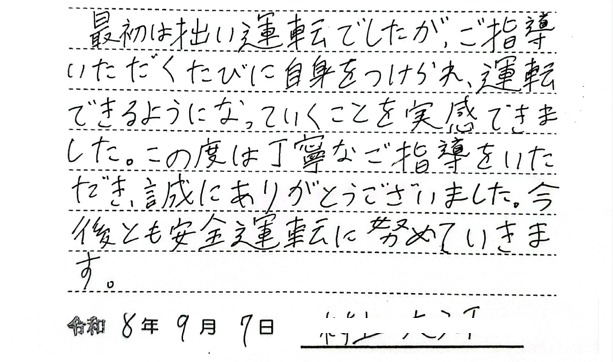 最初は拙い運転でしたが、ご指導
いただくたびに自身をつけられ、運転
できるようになっていくことを実感できま
した。この度は丁寧なご指導をいた
だき、誠にありがとうございました。今
後とも安全運転に努めていきま
す。
令和 8年 9月 7日